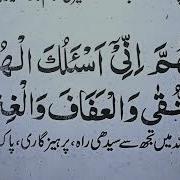 هُمَّ اِنِّیْ اَسْئَلُكَ الْهُ
تُّقٰی وَالْعَفَافَ وَالْغِ
میں تجھ سے سیدھی راہ، پرہیزگاری، پاک